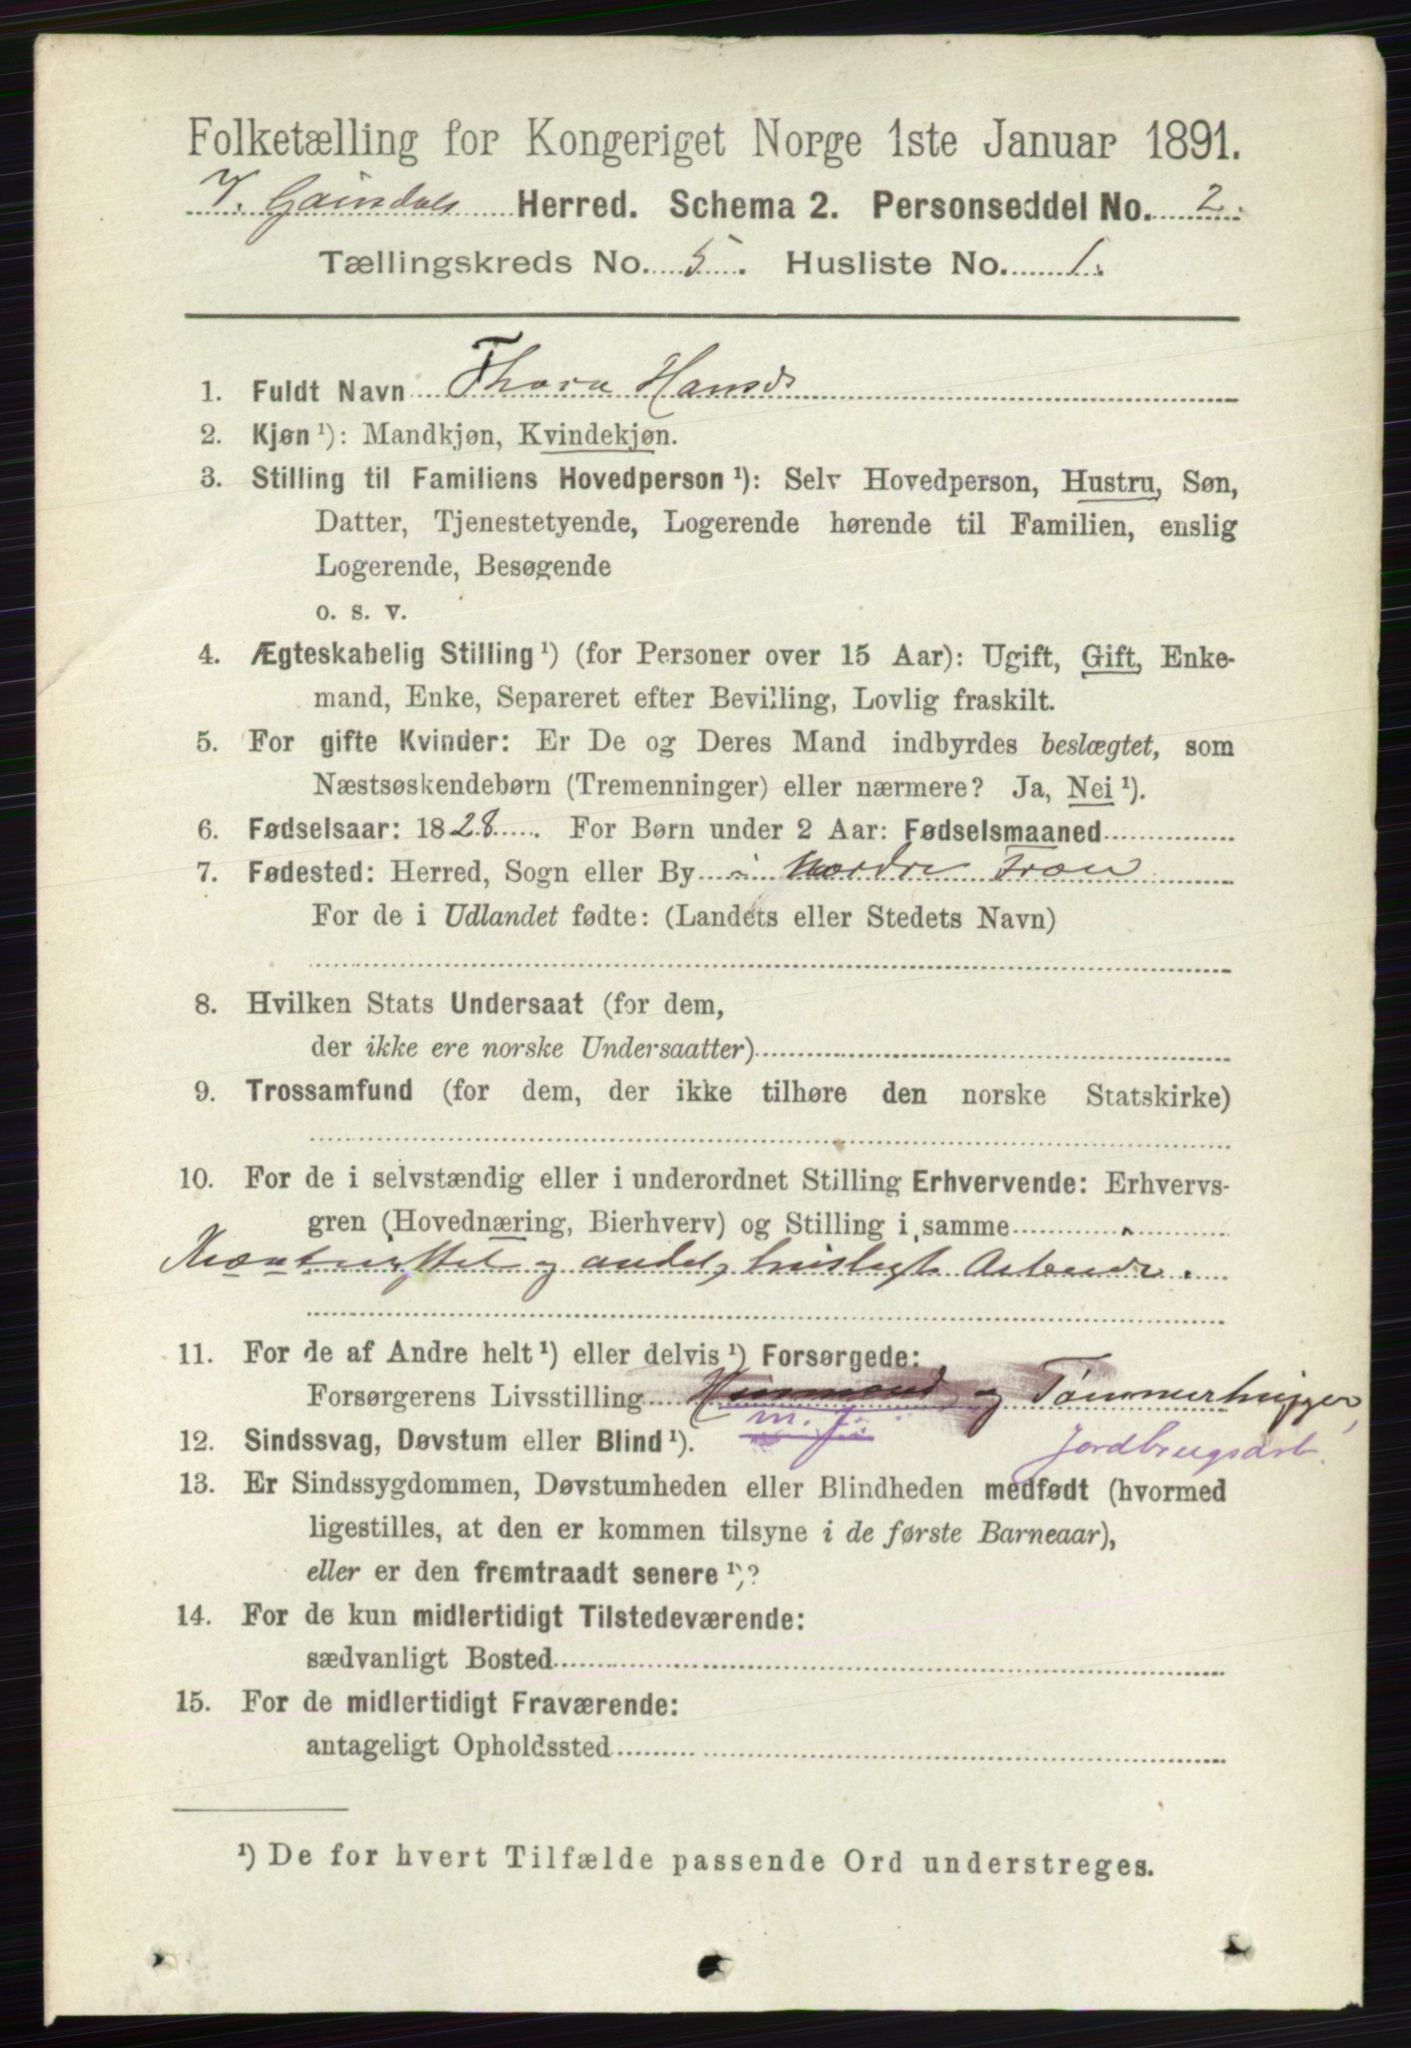 Folketælling for Kongeriget Norge 1ste Januar 1891.
V. Gausdals Herred. Schema 2. Personseddel No. 2.
Tællingskreds No. 5. Husliste No. 1.
1. Fuldt Navn Thora Hansdr
2. Kjøn ¹): Mandkjøn, Kvindekjøn.
3. Stilling til Familiens Hovedperson ¹): Selv Hovedperson, Hustru, Søn,
Datter, Tjenestetyende, Logerende hørende til Familien, enslig
Logerende, Besøgende
o. s. v.
4. Ægteskabelig Stilling ¹) (for Personer over 15 Aar): Ugift, Gift, Enke-
mand, Enke, Separeret efter Bevilling, Lovlig fraskilt.
5. For gifte Kvinder: Er De og Deres Mand indbyrdes beslægtet, som
Næstsøskendebørn (Tremenninger) eller nærmere? Ja, Nei ¹).
6. Fødselsaar: 1828. For Børn under 2 Aar: Fødselsmaaned
7. Fødested: Herred, Sogn eller By i Nordre Fron
For de i Udlandet fødte: (Landets eller Stedets Navn)
8. Hvilken Stats Undersaat (for dem,
der ikke ere norske Undersaatter)
9. Trossamfund (for dem, der ikke tilhøre den norske Statskirke)
10. For de i selvstændig eller i underordnet Stilling Erhvervende: Erhvervs-
gren (Hovednæring, Bierhverv) og Stilling i samme
Kreaturstel og andet husligt Arbeide.
11. For de af Andre helt ¹) eller delvis ¹) Forsørgede:
Forsørgerens Livsstilling Husmand og Tømmerhugger,
m. J.
12. Sindssvag, Døvstum eller Blind ¹). Jordbrugsarb.
13. Er Sindssygdommen, Døvstumheden eller Blindheden medfødt (hvormed
ligestilles, at den er kommen tilsyne i de første Barneaar),
eller er den fremtraadt senere ¹)?
14. For de kun midlertidigt Tilstedeværende:
sædvanligt Bosted
15. For de midlertidigt Fraværende:
antageligt Opholdssted
¹) De for hvert Tilfælde passende Ord understreges.